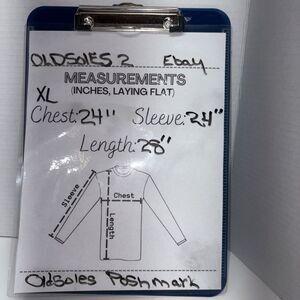 OLDSOLES 2 Ebay
MEASUREMENTS
(INCHES, LAYING FLAT)
XL
Chest: 24" Sleeve: 24"
Length: 28"
Sleeve
Chest
Length
OldSoles Poshmark